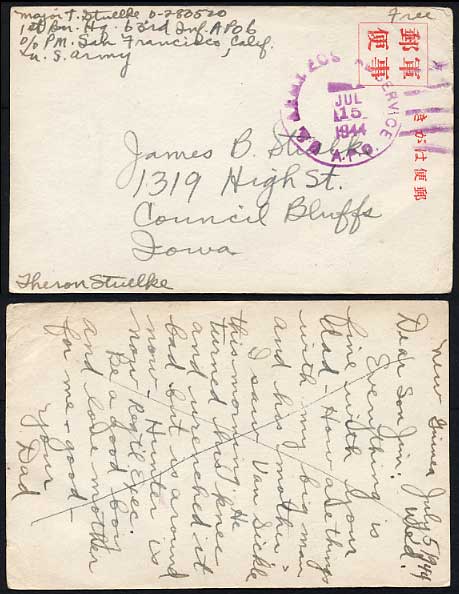 Major T. Stuelke O-280520
1st Bn. Hq. 63rd Inf. APO 6
c/o PM. San Francisco, Calif.
U.S. Army
Free
軍事
郵便
郵便はがき
U.S. ARMY POSTAL SERVICE
JUL
15
1944
A.P.O.
James B. Stuelke
1319 High St.
Council Bluffs
Iowa
Theron Stuelke
New Guinea July 5, 1944
Wed.
Dear Son Jim:
Everything is
fine with your
Dad - How are things
with my big man
and his mother.
I saw Van Sickle
this morning. He
turned his knee
and wrenched it
bad but is around
now. Hunter is
now Reg'tl Exec.
Be a good boy
and love mother
for me - good
Your
Dad